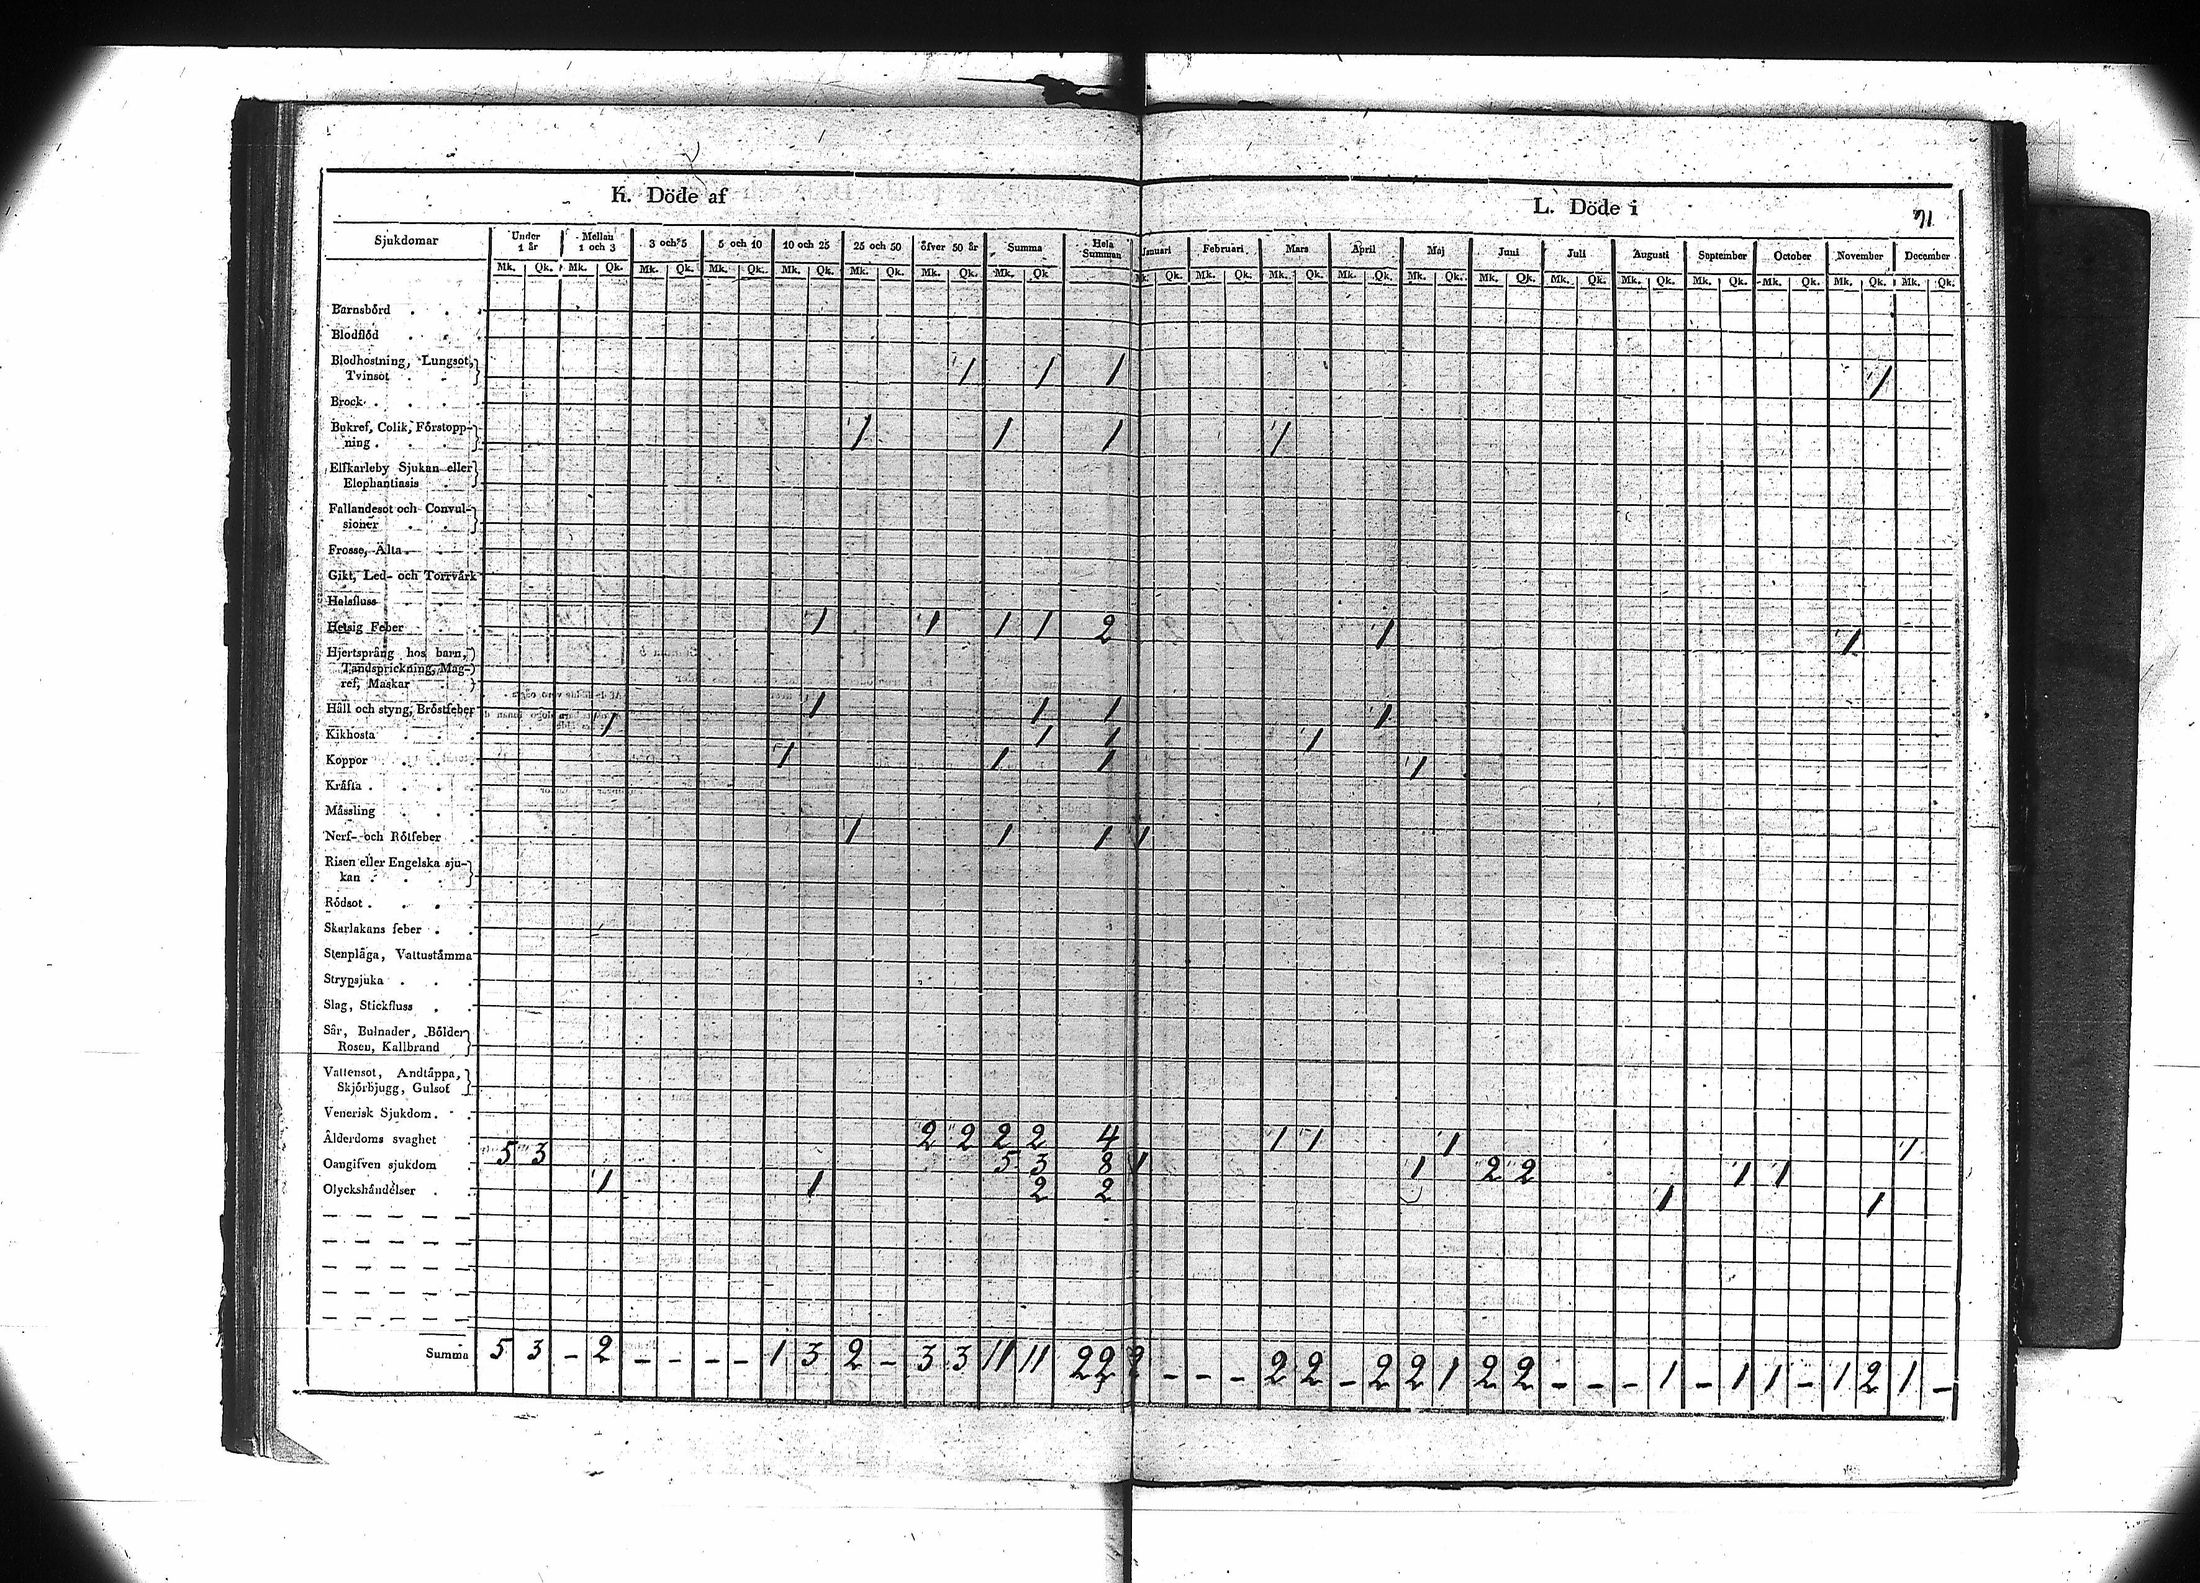 K. Döde af
L. Döde i
71
Sjukdomar Under 1 år Mellan 1 och 3 3 och 5 5 och 10 10 och 25 25 och 50 öfver 50 år Summa Hela Summan Januari Februari Mars April Maj Juni Juli Augusti September October November December
Mk. Qk. Mk. Qk. Mk. Qk. Mk. Qk. Mk. Qk. Mk. Qk. Mk. Qk. Mk. Qk. Mk. Qk. Mk. Qk. Mk. Qk. Mk. Qk. Mk. Qk. Mk. Qk. Mk. Qk. Mk. Qk. Mk. Qk. Mk. Qk. Mk. Qk. Mk. Qk.
Barnsbörd
Blodflöd
Blodhostning, Lungsot,
Tvinsot 1 1 1 1
Brock
Bukref, Colik, Förstopp-
ning 1 1 1 1
Elfkarleby Sjukan eller
Elephantiasis
Fallandesot och Convul-
sioner
Frosse, Älta
Gikt, Led- och Torrvärk
Halsfluss
Hetsig Feber 1 1 1 1 2 1 1
Hjertsprång hos barn,
Tandsprickning, Mag-
ref, Maskar
Håll och styng, Bröstfeber 1 1 1 1
Kikhosta 1 1 1 1
Koppor 1 1 1 1
Kräfta
Mässling
Nerf- och Rötfeber 1 1 1 1
Risen eller Engelska sju-
kan
Rödsot
Skarlakans feber
Stenplåga, Vattustämma
Strypsjuka
Slag, Stickfluss
Sår, Bulnader, Bölder
Rosen, Kallbrand
Vattensot, Andtäppa,
Skjörbjugg, Gulsot
Venerisk Sjukdom
Ålderdoms svaghet 2 2 2 2 4 1 1 1 1
Oangifven sjukdom 5 3 5 3 8 1 1 2 2 1 1
Olyckshändelser 1 1 2 2 1 1
Summa 5 3 - 2 - - - - 1 3 2 - 3 3 11 11 22 2 - - - 2 2 - 2 2 1 2 2 - - - 1 - 1 1 - 1 2 1 -